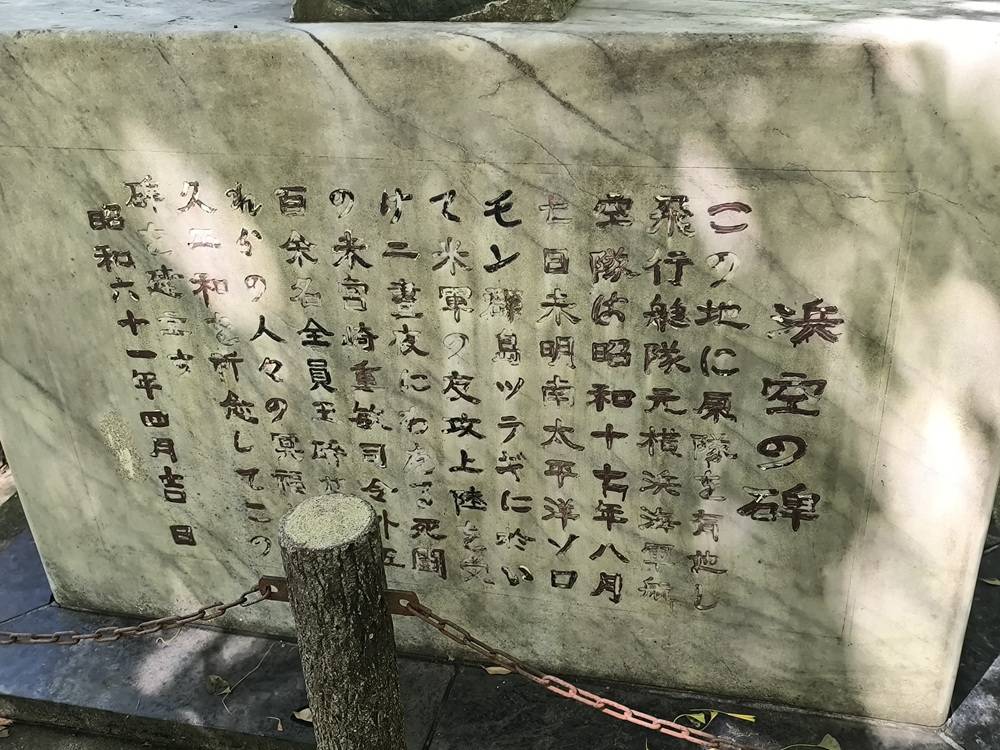 浜空の碑
この地に原隊を有せし
飛行艇隊元横浜海軍航
空隊は昭和十七年八月
七日未明南太平洋ソロ
モン群島ツラギに於い
て米軍の反攻上陸を受
け二晝夜にわたる死闘
の末宮崎重敏司令外五
百余名全員玉砕
れらの人々の冥福
久平和を祈念してこの
碑を建立す
昭和六十一年四月吉日